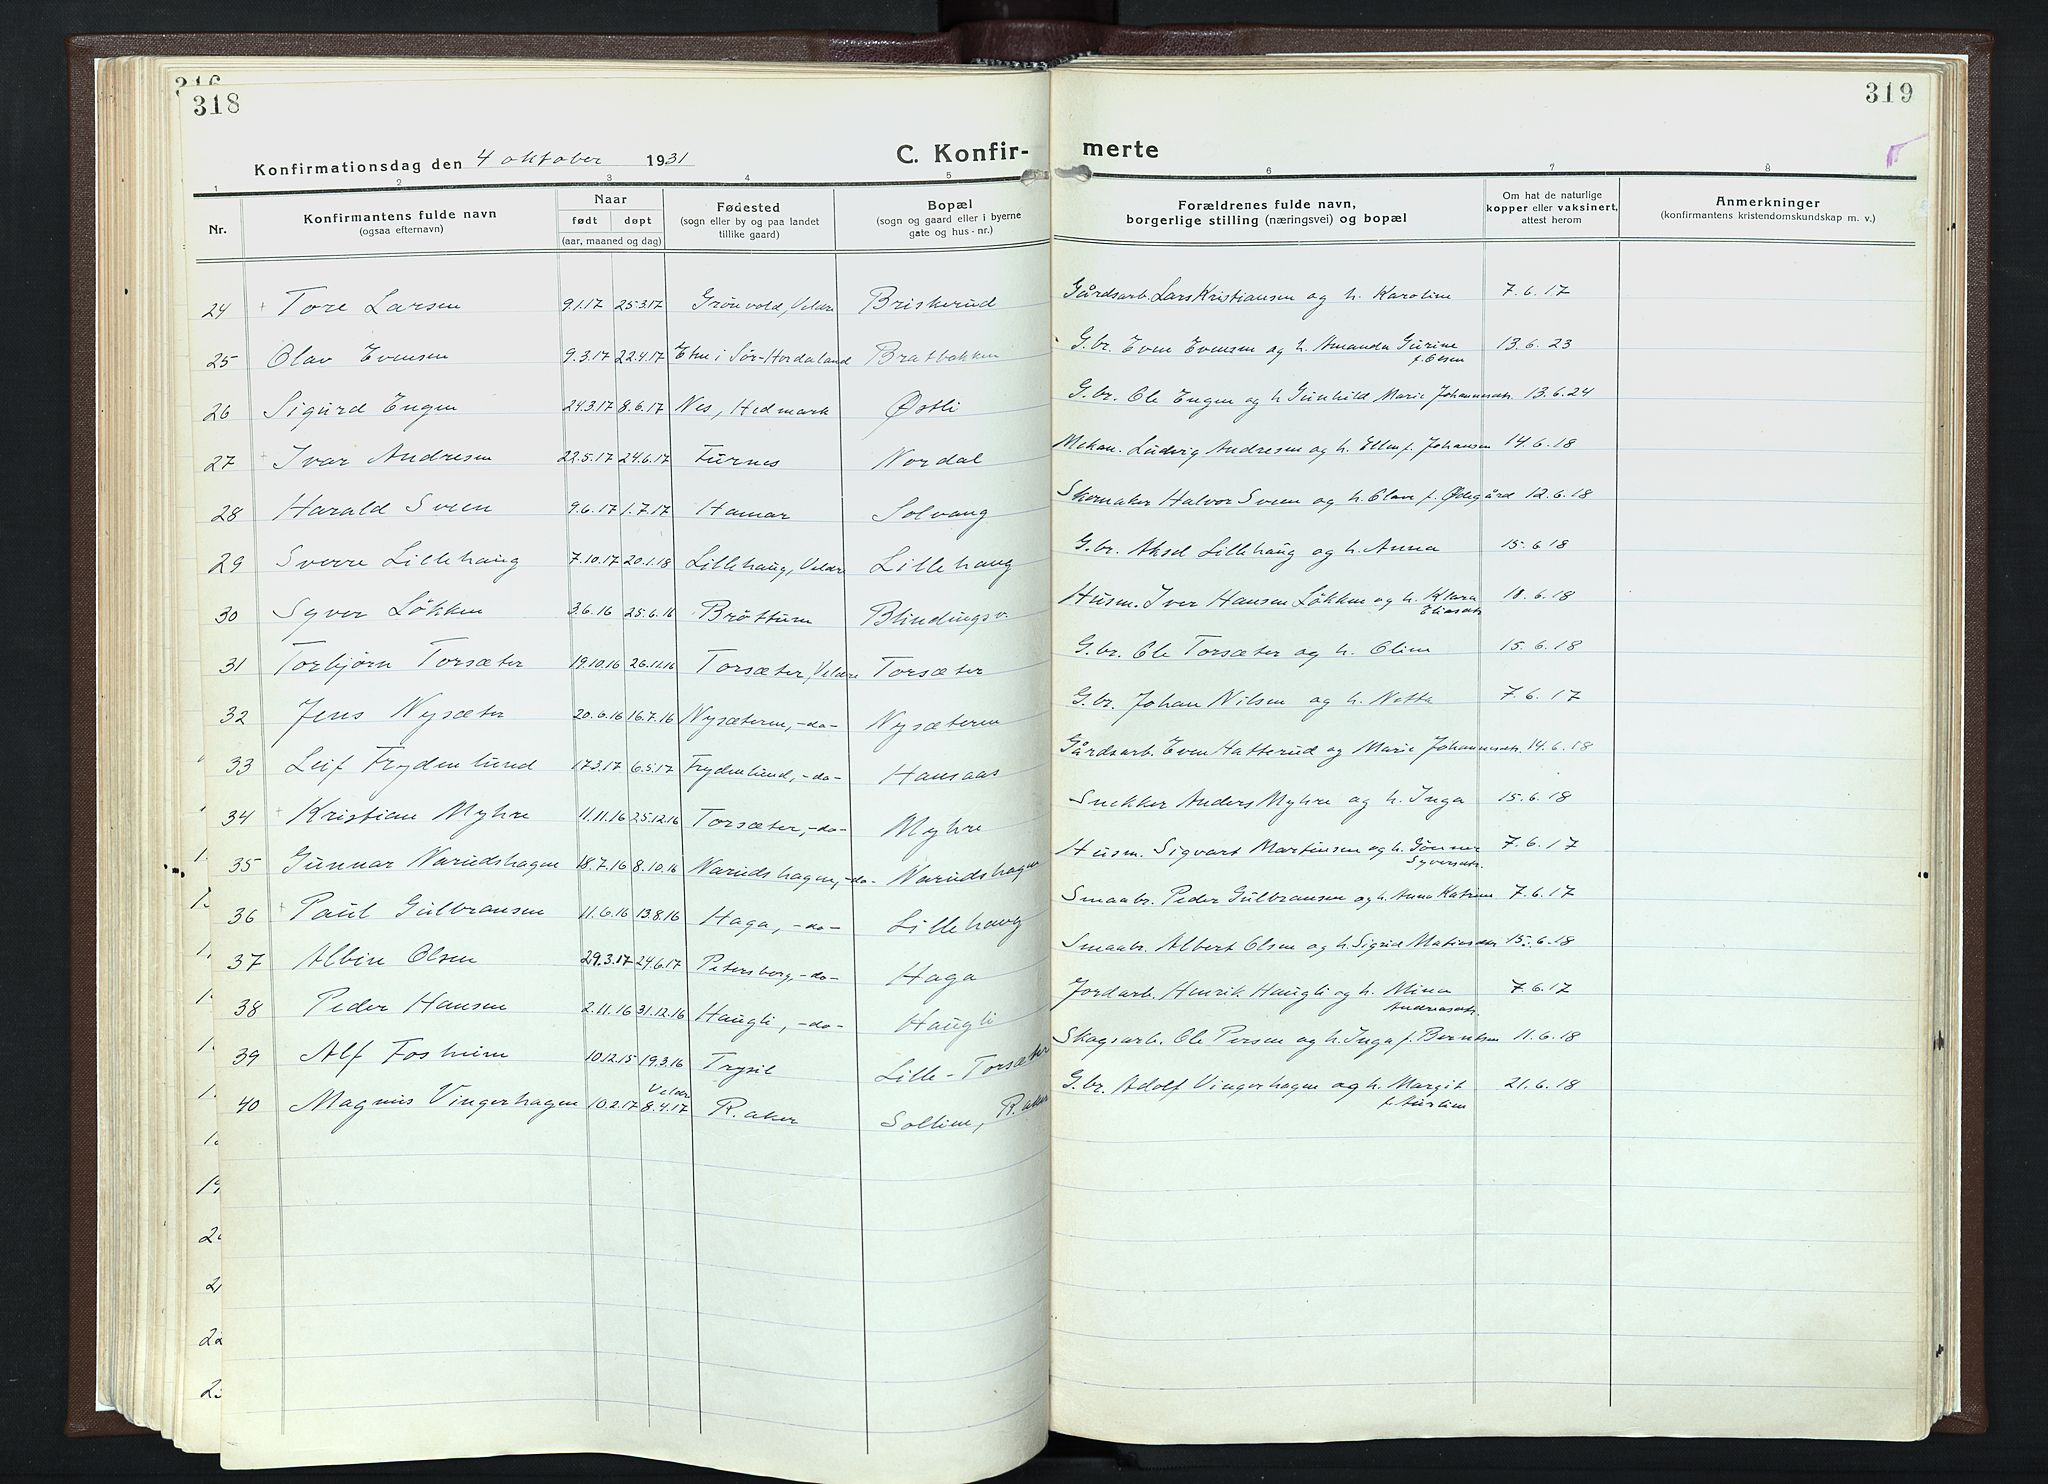 316
318
319
Konfirmationsdag den 4 oktober 1931
C. Konfir-
merte
1 2 3 4 5
6 7 8
Nr.
Konfirmantens fulde navn
(ogsaa efternavn)
Naar
født døpt
(aar, maaned og dag)
Fødested
(sogn eller by og paa landet
tillike gaard)
Bopæl
(sogn og gaard eller i byerne
gate og hus-nr.)
Forældrenes fulde navn,
borgerlige stilling (næringsvei) og bopæl
Om hat de naturlige
kopper eller vaksinert,
attest herom
Anmerkninger
(konfirmantens kristendomskundskap m. v.)
24 Tore Larsen 9.1.17 25.3.17 Grønvold, Veldre Briskerud Gårdsarb. Lars Kristiansen og h. Karoline 7.6.17
25 Olav Evensen 9.3.17 22.4.17 Etne i Sør-Hordaland Bratbakken G.br. Even Evensen og h. Amanda Gurine 13.6.23
f. Olsen
26 Sigurd Engen 24.3.17 8.6.17 Nes, Hedmark Østli G.br. Ole Engen og h Gunhild Marie Johannesdt. 13.6.24
27 Ivar Andresen 22.5.17 24.6.17 Furnes Nordal Mekan. Ludvig Andresen og h. Ellen f. Johansen 14.6.18
28 Harald Sveen 9.6.17 1.7.17 Hamar Solvang Skomaker Halvor Sveen og h. Olave f. Ødegård 12.6.18
29 Sverre Lillehaug 7.10.17 20.1.18 Lillehaug, Veldre Lillehaug G.br. Aksel Lillehaug og h. Anna 15.6.18
30 Syver Løkken 3.6.16 25.6.16 Brøttum Blindingsv. Husm. Iver Hansen Løkken og h. Klara 10.6.18
Eliasdt.
31 Torbjørn Torsæter 19.10.16 26.11.16 Torsæter, Veldre Torsæter G.br. Ole Torsæter og h. Oline 15.6.18
32 Jens Nysæter 20.6.16 16.7.16 Nysæteren, -do- Nysæteren G.br. Johan Nilsen og h. Netta 7.6.17
33 Leif Frydenlund 17.3.17 6.5.17 Frydenlund, -do- Hansaas Gårdsarb. Even Hatterud og Marie Johannesdt. 14.6.18
34 Kristian Myhre 11.11.16 25.12.16 Torsæter, -do- Myhre Snekker Anders Myhre og h. Inga 15.6.18
35 Gunnar Narudshagen 18.7.16 8.10.16 Narudshagen, -do- Narudshagen Husm. Sigvart Martinsen og h. Gunnor 7.6.17
Syversdt.
36 Paul Gulbransen 11.6.16 13.8.16 Haga, -do- Lillehaug Smaabr. Peder Gulbransen og h. Anna Katrine 7.6.17
37 Albin Olsen 29.3.17 24.6.17 Petersberg, -do- Haga Smaabr. Albert Olsen og h. Sigrid 15.6.18
38 Peder Hansen 2.11.16 31.12.16 Haugli, -do- Haugli Jordarb. Henrik Haugli og h. Mina 7.6.17
Andreasdt.
39 Alf Fosheim 10.12.15 19.3.16 Trysil Lille-Torsæter Skogsarb. Ole Persen og h. Inga f. Berntsen 11.6.18
Veldre
40 Magnus Vingerhagen 10.2.17 8.4.17 R.aker Sollien, R.aker G.br. Adolf Vingerhagen og h. Margit 21.6.18